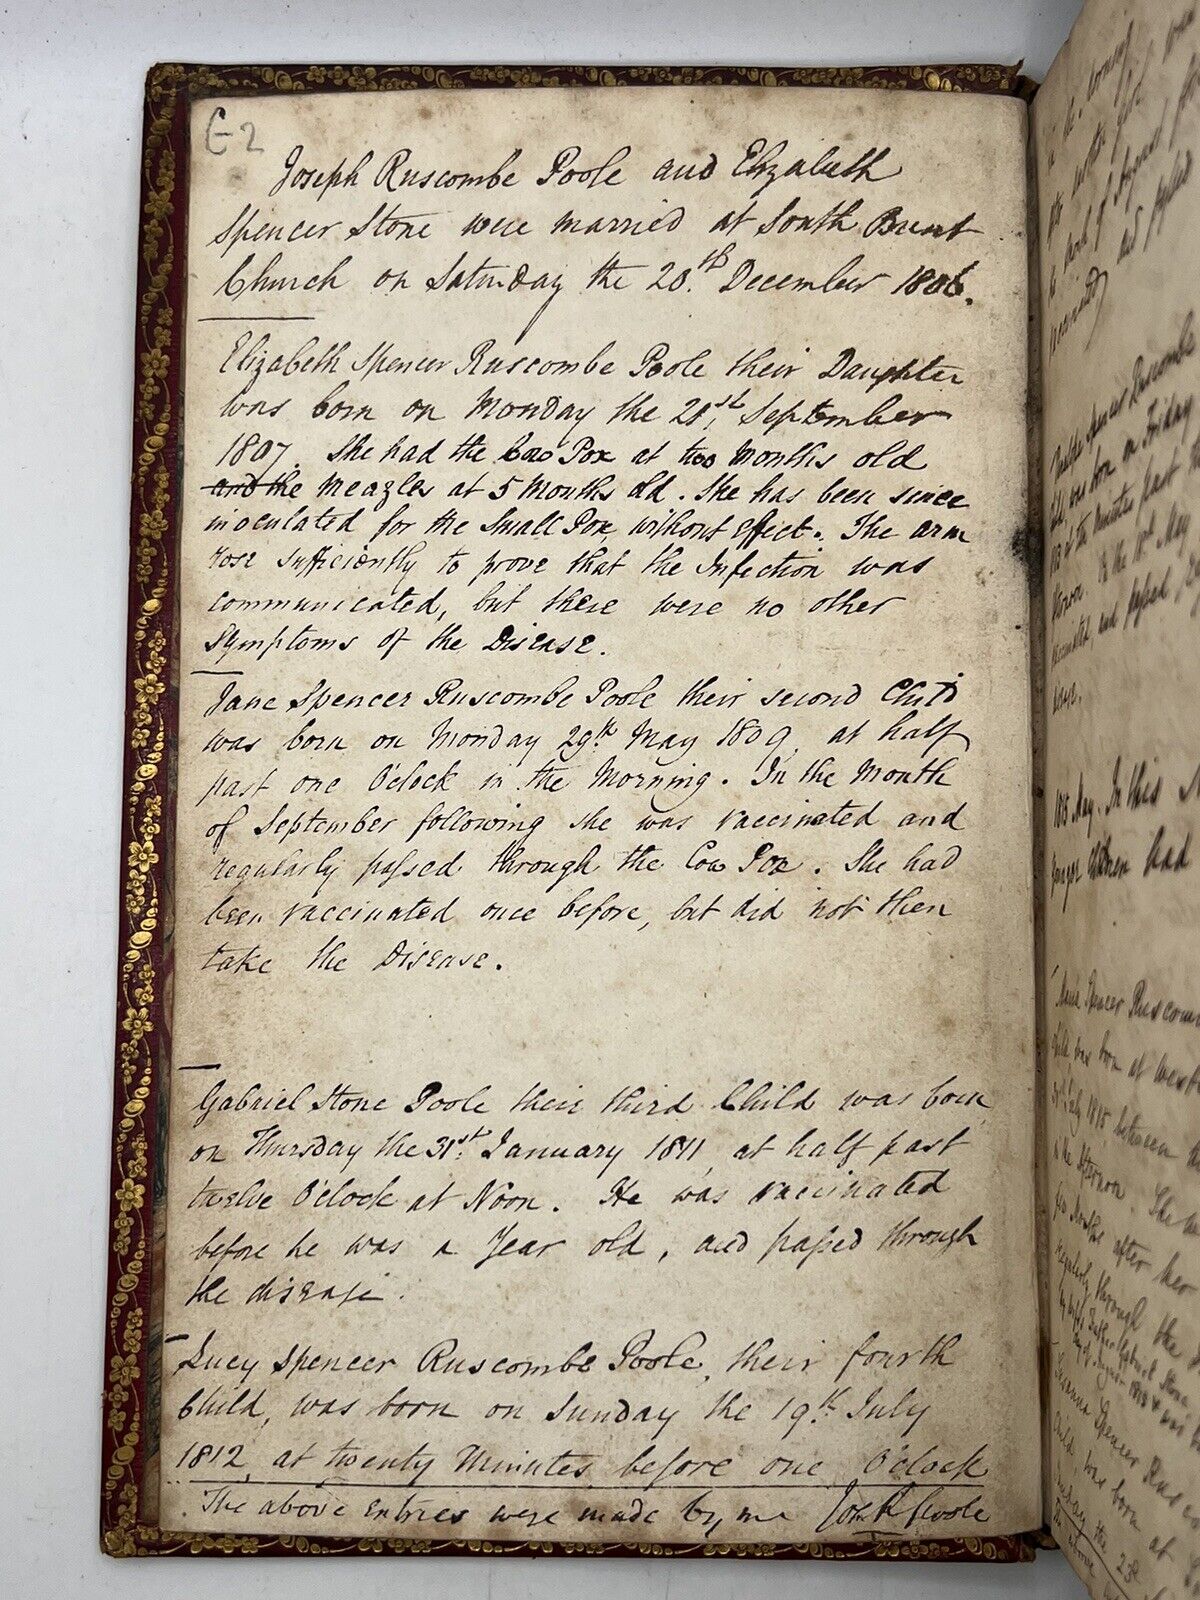 G2
Joseph Ruscombe Poole and Elizabeth
Spencer Stone were married at South Brent
Church on Saturday the 20th. December 1806.
Elizabeth Spencer Ruscombe Poole their Daughter
was born on Monday the 21st. September
1807. She had the Cow Pox at two Months old
and the Meazles at 5 Months old. She has been since
inoculated for the Small Pox, without Effect. The arm
rose sufficiently to prove that the Infection was
communicated, but there were no other
Symptoms of the Disease.
Jane Spencer Ruscombe Poole their second Child
was born on Monday 29th. May 1809, at half
past one O'Clock in the Morning. In the Month
of September following she was vaccinated and
regularly passed through the Cow Pox. She had
been vaccinated once before, but did not then
take the Disease.
Gabriel Stone Poole their third Child was born
on Thursday the 31st. January 1811, at half past
twelve O'Clock at Noon. He was vaccinated
before he was a Year old, and passed through
the disease.
Lucy Spencer Ruscombe Poole, their fourth
Child, was born on Sunday the 19th. July
1812, at twenty Minutes before one O'Clock
The above Entries were made by me Jos R Poole
was born on Friday
the 18th May
1815 May. In this
Children had
Spencer Ruscom
child was born at West
July 1815 between
Afternoon. She
after her
through the
Susanna Spencer Rus
Child, was born at
the 23d